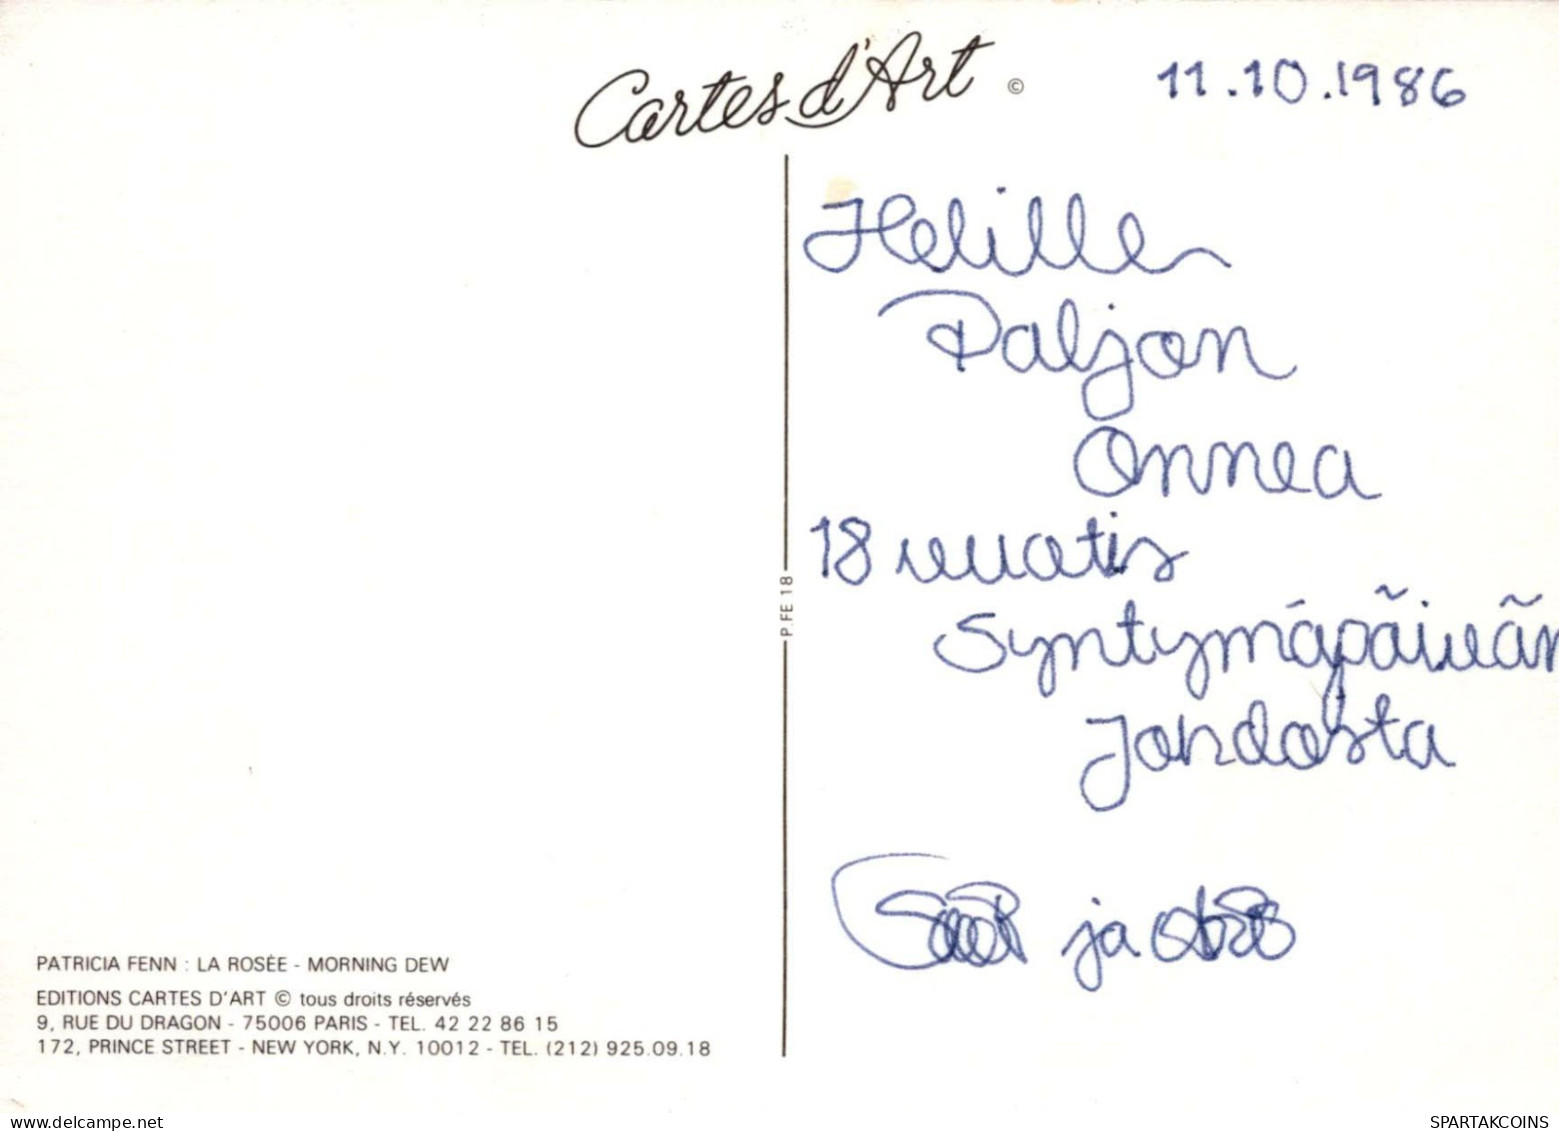 Cartes d'Art ©
11.10.1986
Helille
Paljon
Onnea
18 vuotis
Syntymäpäivän
Johdosta
ja
P.FE 18
PATRICIA FENN : LA ROSÉE - MORNING DEW
EDITIONS CARTES D'ART © tous droits réservés
9, RUE DU DRAGON - 75006 PARIS - TEL. 42 22 86 15
172, PRINCE STREET - NEW YORK, N.Y. 10012 - TEL. (212) 925.09.18
delcampe.net
SPARTAKCOINS